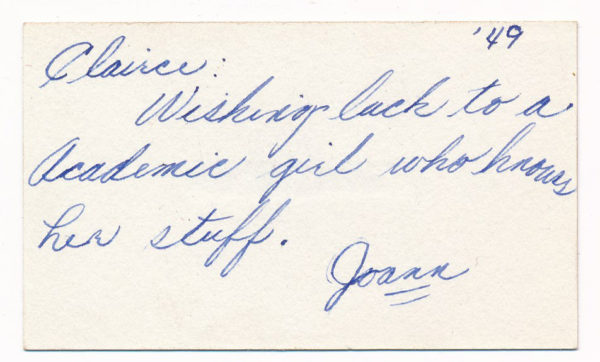 '49
Clairce:
Wishing luck to a
Academic girl who knows
her stuff.
Joann